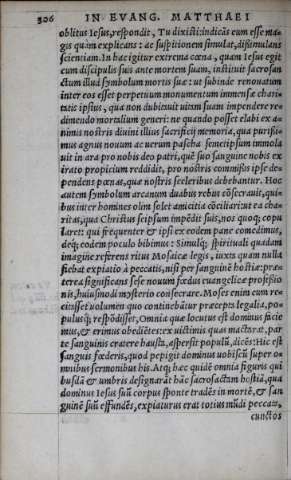 306 IN EVANG. MATTHAEI
oblitus Iesus, respondit, Tu dixisti: indicās eum esse ma-
gis quàm explicans: ac suspitionem simulat, dissimulans
scientiam. In hac igitur extrema cœna, quam Iesus egit
cum discipulis suis ante mortem suam, instituit sacrosan
ctum illud symbolum mortis suæ: ut subinde renouatum
inter eos esset perpetium monumentum immensæ chari-
tatis ipsius, qua non dubitauit uitam suam impendere re-
dimendo mortalium generi: ne quando posset elabi ex a-
nimis nostris diuini illius sacrificij memoria, qua purissi-
mus agnus nouum ac uerum pascha semetipsum immola
uit in ara pro nobis deo patri, quē suo sanguine nobis ex
irato propicium reddidit, pro nostris commissis ipse de-
pendens pœnas, quæ nostris sceleribus debebantur. Hoc
autem symbolum arcanum duabus rebus cōsecrauit, qui-
bus inter homines olim solet amicitia cōciliari: ut ea cha-
ritas, qua Christus seipsum impēdit suis, nos quoq; copu
laret: qui frequenter & ipsi ex eodem pane comedimus,
deq́; eodem poculo bibimus: Simulq; spirituali quadam
imagine referens ritus Mosaicæ legis, iuxta quam nulla
fiebat expiatio à peccatis, nisi per sanguinē hostiæ: præ-
terea, significans sese nouum fœdus euangelicæ professio
nis, huiusmodi mysterio consecrare. Moses enim cum re-
citasset uolumen quo continebātur præcepta legalia, po-
pulusq́; respōdisset, Omnia quæ locutus est dominus facie
mus, & erimus obediētes: ex uictimis quas mactarat, par
te sanguinis cratere hausta, aspersit populū, dicēs: Hic est
sanguis fœderis, quod pepigit dominus uobiscū super o-
mnibus sermonibus his. Atq; hæc quidē omnia figuris qui
busdā & umbris designarāt hāc sacrosactam hostiā, qua
dominus Iesus suū corpus sponte tradēs in mortē, & san
guinē suū effundēs, expiaturus erat totius mūdi peccata,
cunctos